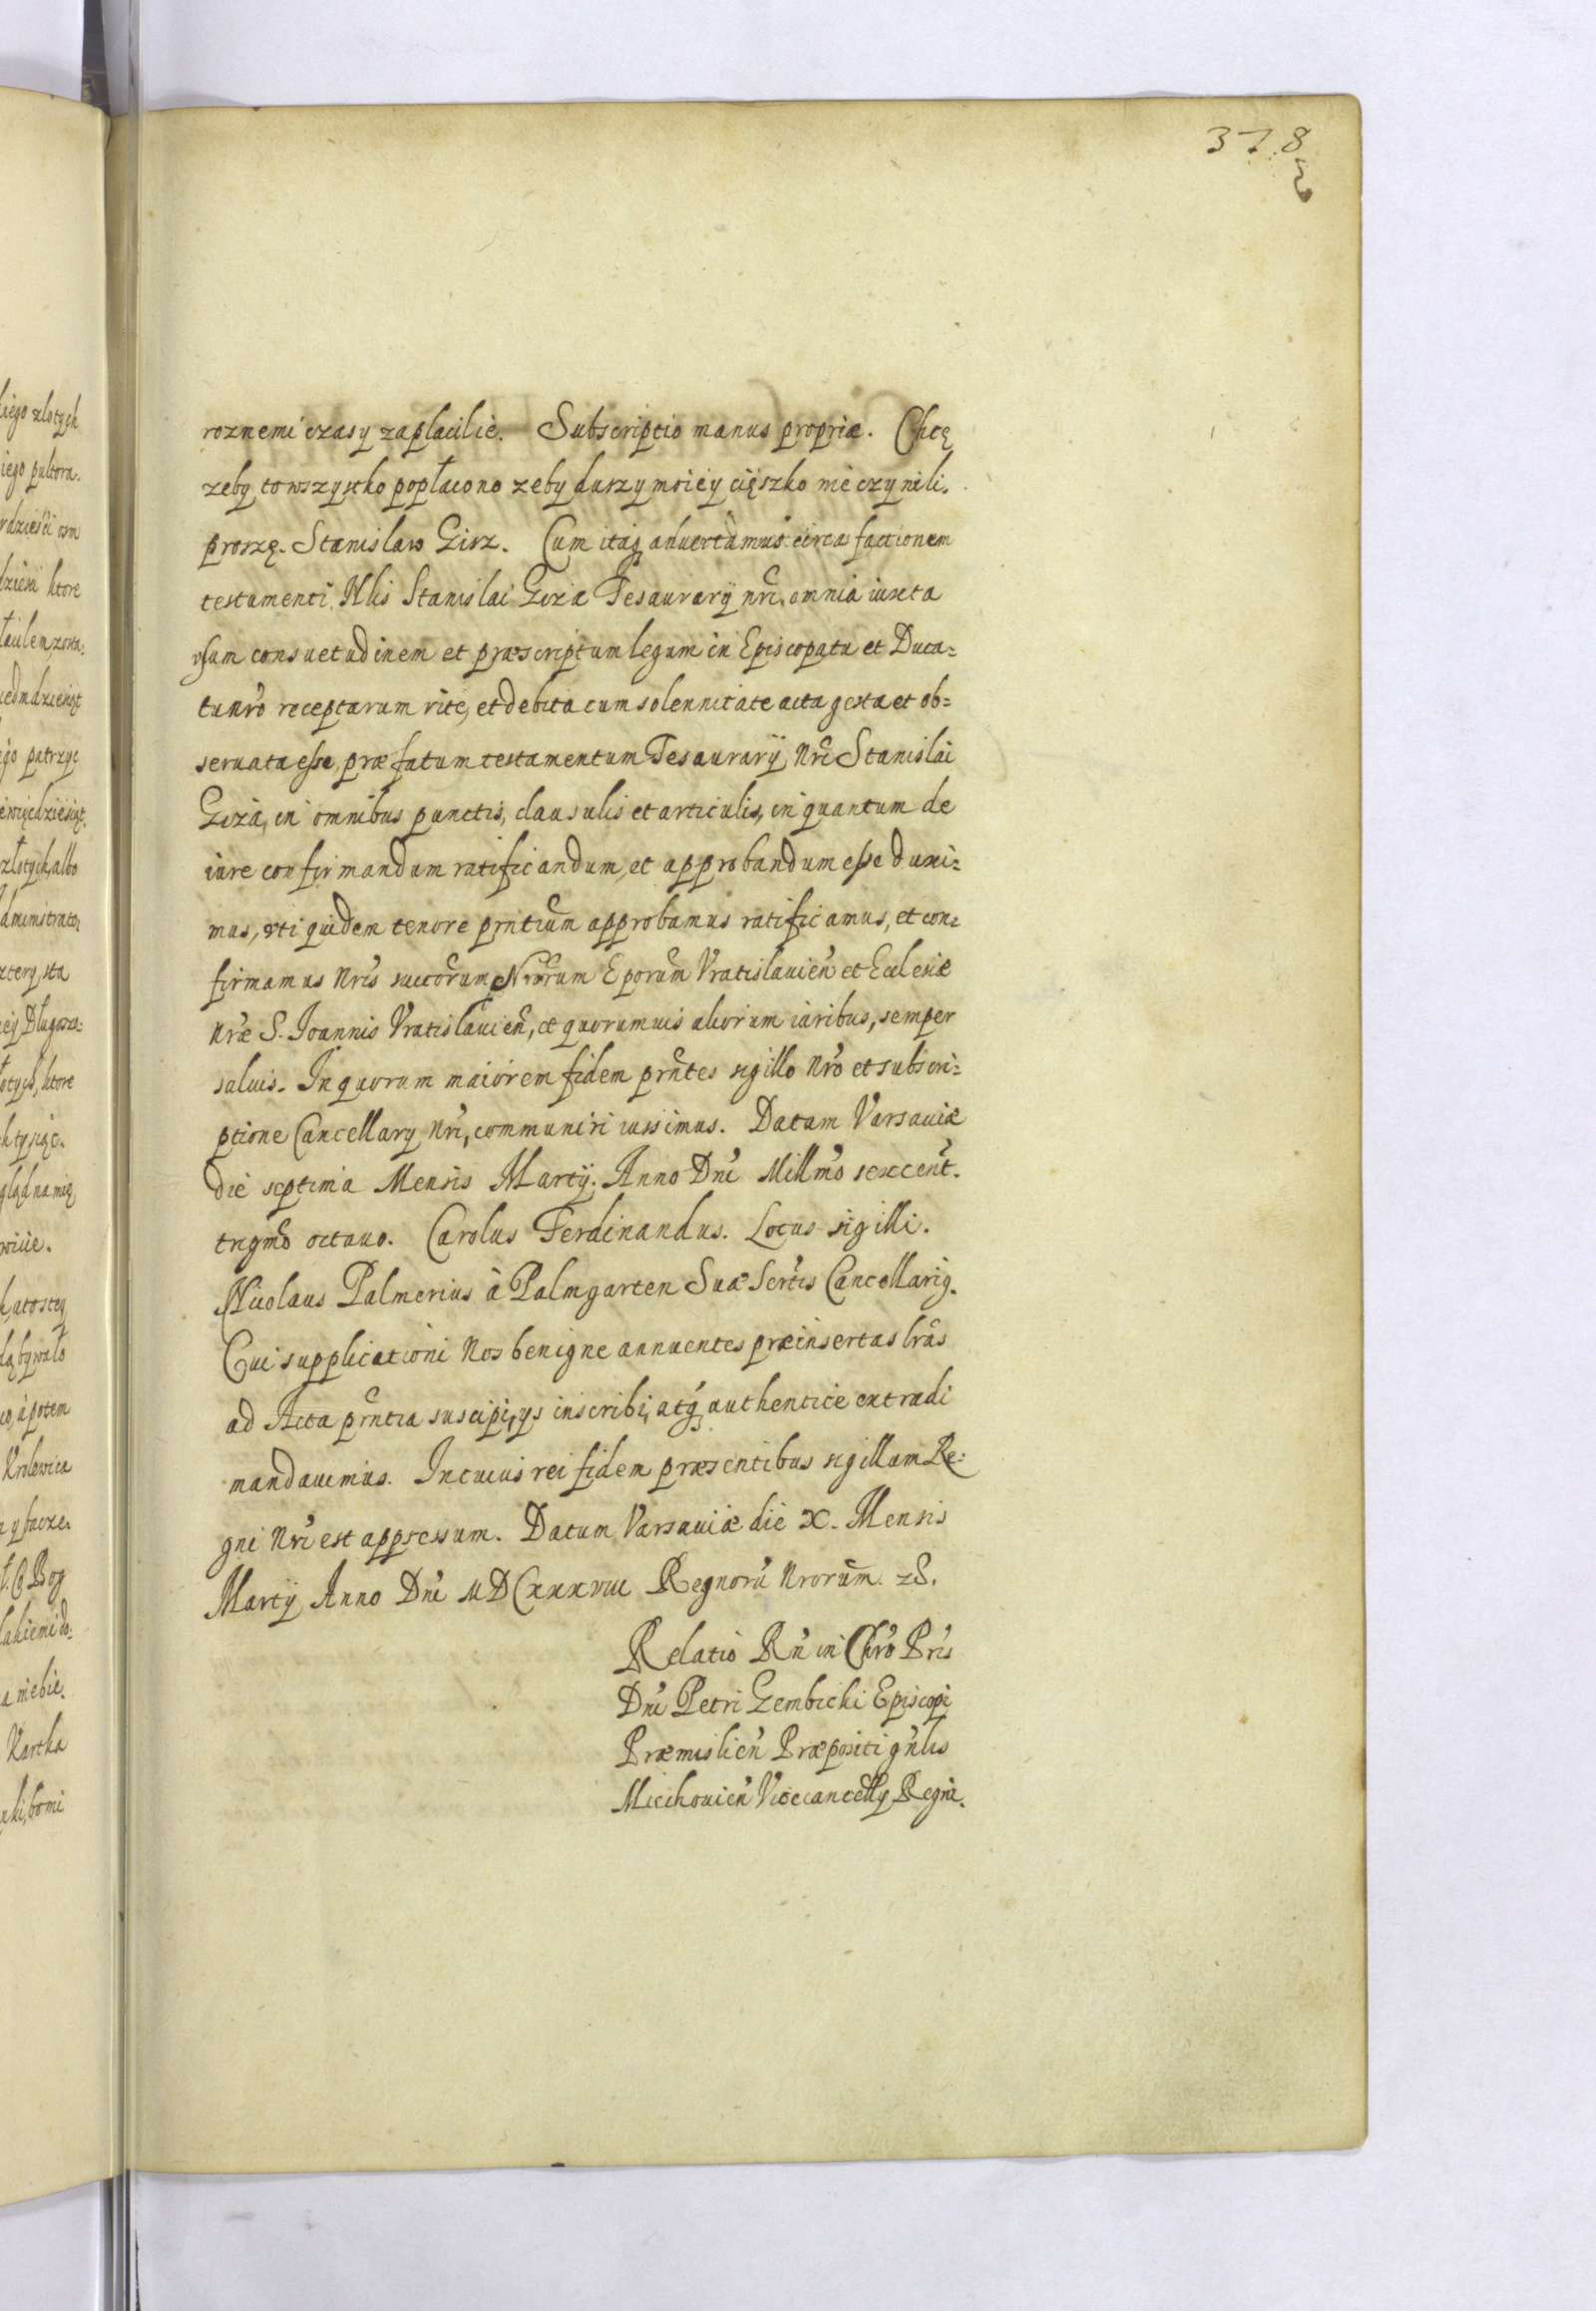 378
roznemi czasy zaplacilie. Subscriptio manus propriæ. Chcę
zeby to wszystko popłacono zeby duszy moiéy ciężko nie czynili.
proszę. Stanislaw Gizz. Cum itaq aduertamus circa factionem
testamenti Nlis Stanislai Giza Tesaurarÿ nri, omnia iuxta
vsum consuetudinem et præscriptum legum in Episcopatu et Duca=
tu nro receptarum rite, et debita cum solennitate acta gesta et ob=
seruata esse, præfatum testamentum Tesaurarÿ Nri Stanislai
Giza, in omnibus punctis, clausulis et articulis, in quantum de
iure confirmandum ratificandum, et approbandum esse duxi=
mus, vti quidem tenore prntium approbamus ratificamus, et con=
firmamus Nris succorum Nrorum Eporum Vratislauien et Ecclesiæ
nræ S. Ioannis Vratislauien, et quorumuis aliorum iuribus, semper
saluis. In quorum maiorem fidem prntes sigillo Nro et subscri=
ptione Cancellary Nri, communiri iussimus. Datum Varsauiæ
die septima Mensis Martÿ. Anno Dni Millmo sexcent.
trigmo octauo. Carolus Ferdinandus. Locus sigilli.
Nicolaus Palmerius à Palmgarten Suæ Sertis Cancellariq.
Cui supplicationi Nos benigne annuentes præinsertas lras
ad Acta prntia suscipi, ys inscribi, atq authentice extradi
mandauimus. In cuius rei fidem præsentibus sigillum Re=
gni Nri est appressum. Datum Varsauiæ die X. Mensis
Martÿ Anno Dni MDCxxxviii Regnorū Nrorum. zS.
Relatio Rn in Chro Pris
Dni Petri Gembicki Episcopi
Præmislien Præpositi gnlis
Miechouien Vicecancelly Regni.